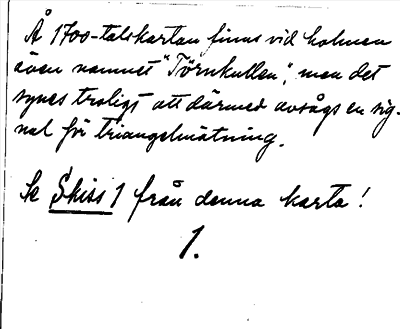 Å 1700-talskartan finns vid holmen
även namnet "Törnkullen", men det
synes troligt att därmed avsågs en sig-
nal för triangelmätning.
Se Skiss 1 från denna karta!
1.